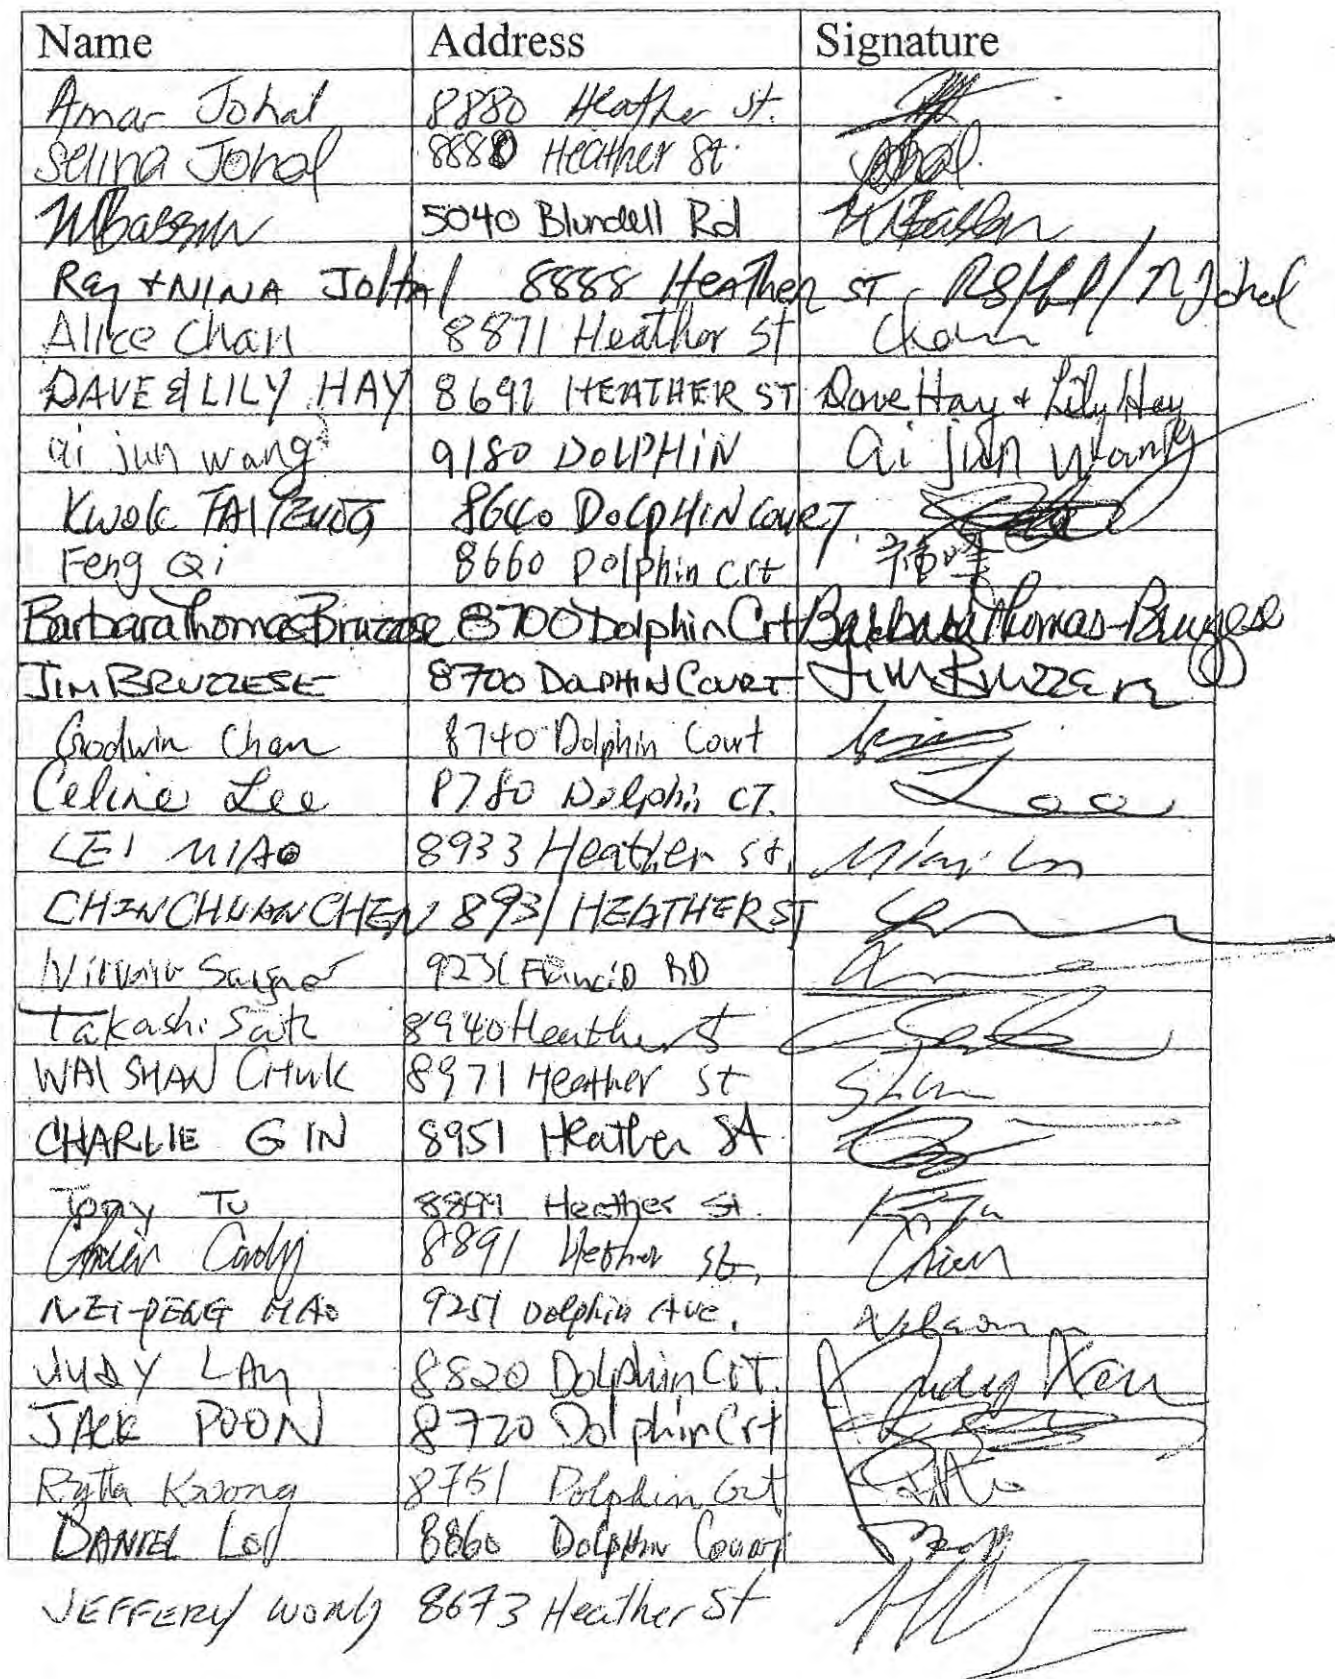 Name Address Signature
Amar Johal 8880 Heather St.
Selina Johal 8880 Heather St. Johal
5040 Blundell Rd
Ray + NINA JOHAL 8888 HEATHER ST N Johal
Alice Chan 8871 Heather St Chan
DAVE & LILY HAY 8691 HEATHER ST Dave Hay & Lily Hay
ai jun wang 9180 DOLPHIN ai jun wang
KWOK TAI 8640 DOLPHIN COURT
Feng Qi 8660 Dolphin crt
Barbara Thomas-Bruzzese 8700 Dolphin Crt Barbara Thomas-Bruzzese
JIM BRUZZESE 8700 DOLPHIN COURT Jim Bruzzese
Godwin Chan 8740 Dolphin Court
Celine Lee 8780 Dolphin CT. Lee
LEI MIAO 8933 Heather St.
CHINCHUANCHEN 8931 HEATHER ST
9231 Francis RD
Takashi 8940 Heather St
WAI SHAN CHUK 8971 Heather St Shan
CHARLIE GIN 8951 Heather St
Tony Tu 8899 Heather St.
8891 Heather St.
NEI-PENG HAO 9251 Dolphin Ave.
JUDY LAU 8820 Dolphin Crt. Judy
JACK POON 8720 Dolphin Crt
Rytta Kwong 8751 Dolphin Crt
DANIEL 8860 Dolphin Court
JEFFERY WONG 8673 Heather St